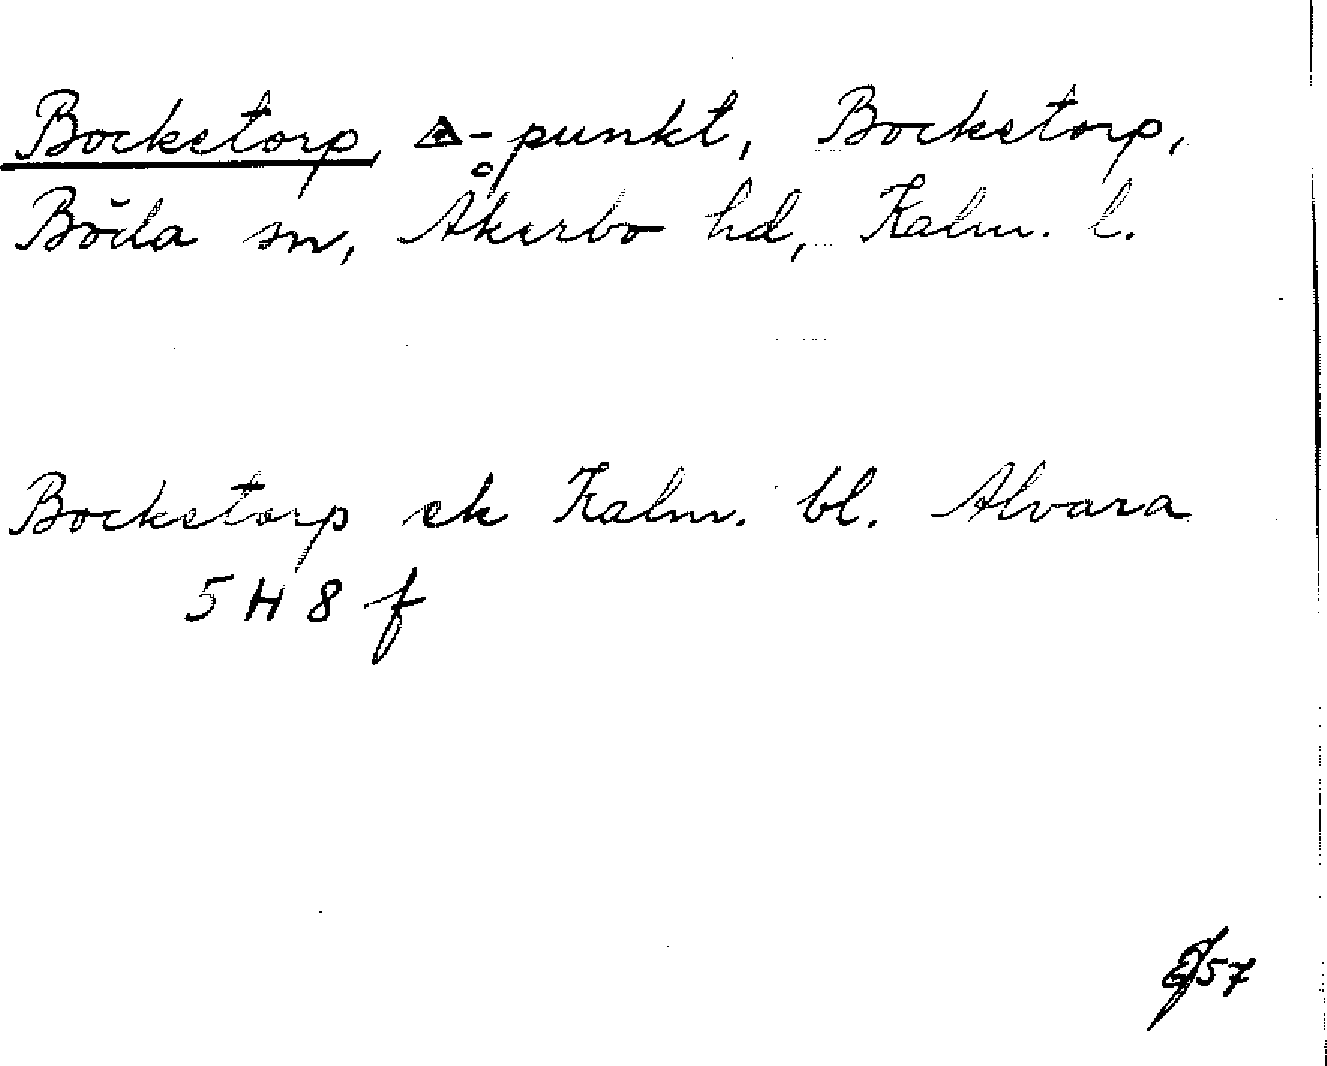 Bocketorp, △-punkt, Bocketorp,
Böda sn, Åkerbo hd, Kalm. l.
Bocketorp ek Kalm. bl. Alvara
5 H 8 f
57